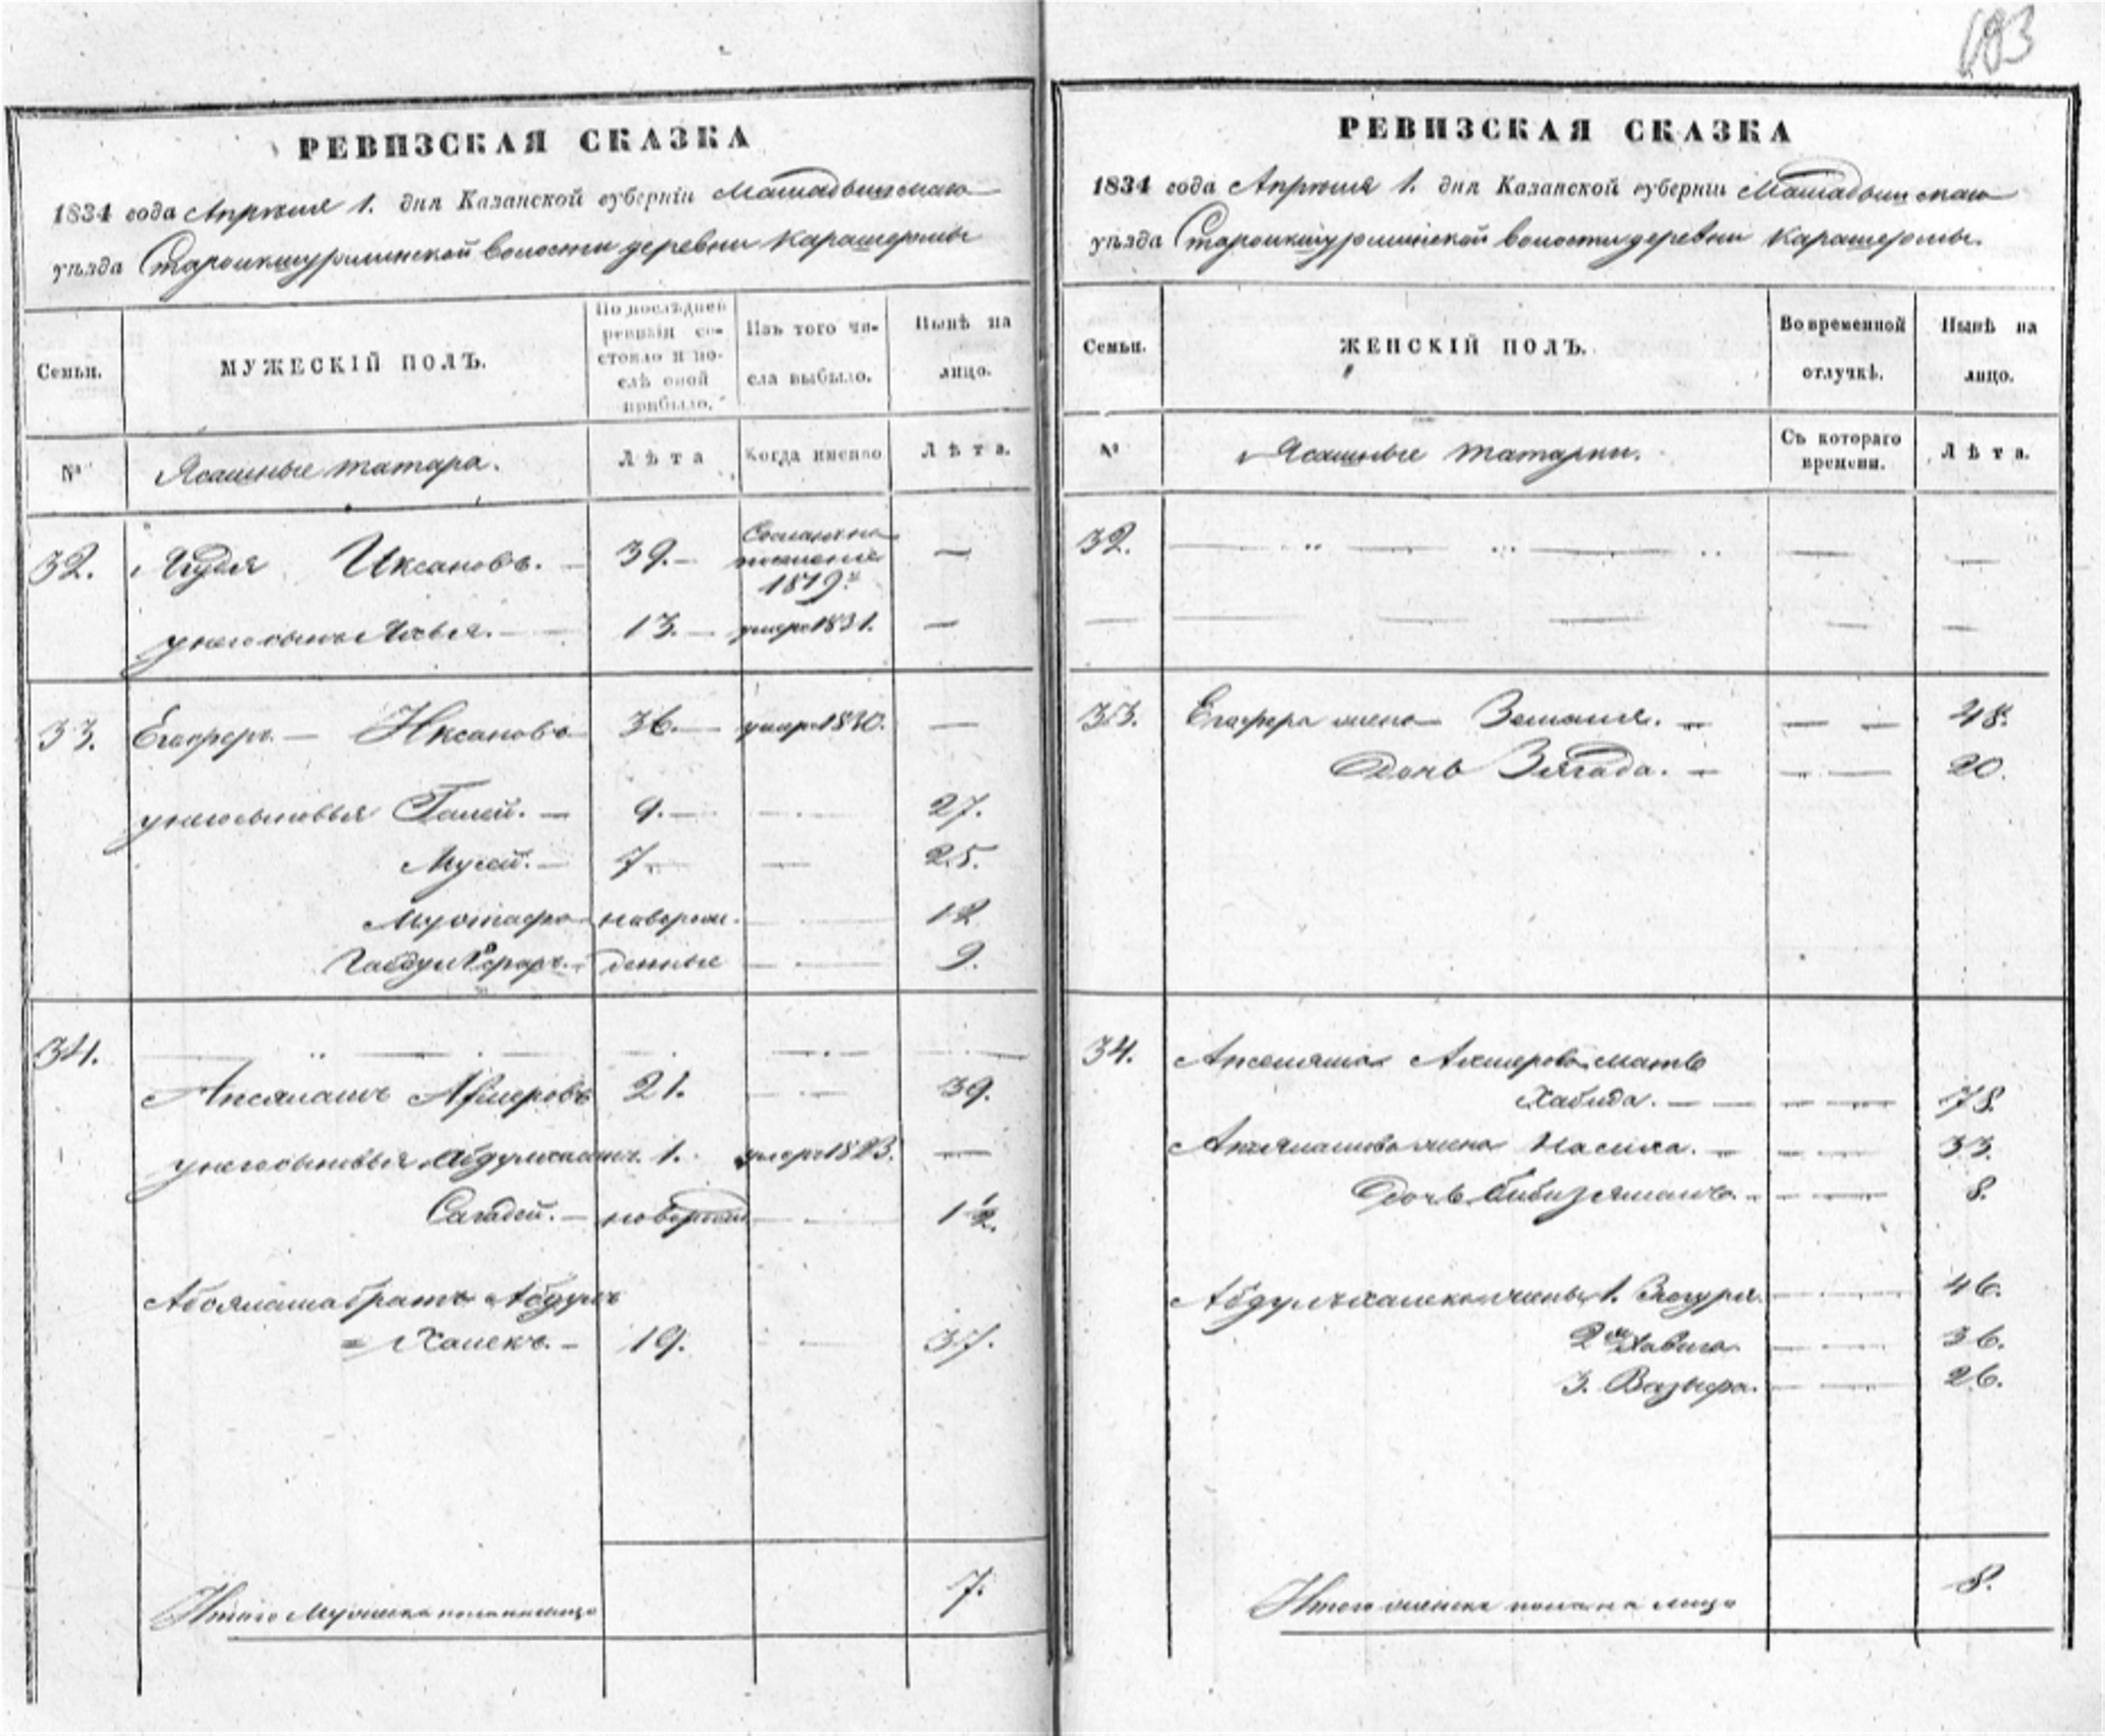 193
РЕВИЗСКАЯ СКАЗКА
1834 года Апрѣля 1. дня Казанской губерніи Мамадышскаго
уѣзда Старокишурминской волости деревни Карашермы
Семьи.
МУЖЕСКІЙ ПОЛЪ.
По послѣдней ревизіи состояло и послѣ оной прибыло.
Изъ того числа выбыло.
Нынѣ на лицо.
№
Ясашные татара.
Лѣта
Когда именно
Лѣта.
32. Иксановъ. 39. Сосланъ на поселеніе 1819. —
у него сынъ 13. умеръ 1831. —
33. Егоферъ Иксановъ 36. умеръ 1830. —
у него сыновья Галей. 9. 27.
Мусей. 7 25.
Мустафа новорож- 12
Габдул денные 9.
34.
Апсялямъ 21. 39.
у него сыновья 1. умеръ 1823. —
Сагадей. новорожд 12.
Абсялама братъ Абдулъ
= Халекъ. 19. 37.
Итого Мужеска пола налицо 7.
РЕВИЗСКАЯ СКАЗКА
1834 года Апрѣля 1. дня Казанской губерніи Мамадышскаго
уѣзда Старокишурминской волости деревни Карашермы.
Семьи.
ЖЕНСКІЙ ПОЛЪ.
Во временной отлучкѣ.
Нынѣ на лицо.
№
Ясашные татарки.
Съ котораго времени.
Лѣта.
32.
33. Егофера жена 48.
Дочь Зягода. 20.
34. мать
Хабида. 78.
жена Насиха. 33.
Дочь Бибизямалъ. 8.
Абдулъхалека жены 1. 46.
2я 36.
3. Вазыфа. 26.
Итого женска пола на лицо 8.